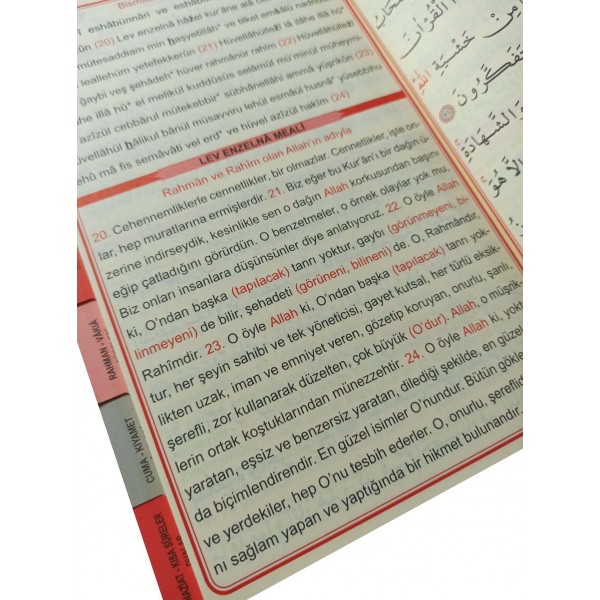 eshâbünnâri ve eshâbül
(20) Lev enzelnâ hâzel kur'âne alâ
mütesaddiam min haşyetillâh* ve tilkel emsâlü nadribühâ
teallehüm yetefekkerûn (21) Hüvellâhüllezî lâ ilâhe illâ hû*
gaybi veş şehâdeh* hüver rahmânür rahîm (22) Hüvellâhüllezî
illâ hû* el melikül kuddûsüs selâmül mü'minül müheymi-
azîzül cebbârul mütekebbir* sübhânellâhi ammâ yüşrikûn (23)
Hüvellâhül hâlikul bâriül müsavviru lehül esmâül husnâ* yüsebbihu
lehû mâ fis semâvâti vel erd* ve hüvel azîzul hakîm (24)
LEV ENZELNÂ MEALİ
Rahmân ve Rahîm olan Allah'ın adıyla
20. Cehennemliklerle cennetlikler, bir olmazlar. Cennetlikler, işte on-
lar, hep muratlarına ermişlerdir. 21. Biz eğer bu Kur'ân'ı bir dağın ü-
zerine indirseydik, kesinlikle sen o dağın Allah korkusundan başını
eğip çatladığını görürdün. O benzetmeler, o örnek olaylar yok mu,
Biz onları insanlara düşünsünler diye anlatıyoruz. 22. O öyle Allah
ki, O'ndan başka (tapılacak) tanrı yoktur, gaybı (görünmeyeni, bi-
linmeyeni) de bilir, şehadeti (görüneni, bilineni) de. O, Rahmândır,
Rahîmdir. 23. O öyle Allah ki, O'ndan başka (tapılacak) tanrı yok-
tur, her şeyin sahibi ve tek yöneticisi, gayet kutsal, her türlü eksik-
likten uzak, iman ve emniyet veren, gözetip koruyan, onurlu, şanlı,
şerefli, zor kullanarak düzelten, çok büyük (O'dur). Allah, o müşrik-
lerin ortak koştuklarından münezzehtir. 24. O öyle Allah ki, yoktan
yaratan, eşsiz ve benzersiz yaratan, dilediği şekilde, en güzel
da biçimlendirendir. En güzel isimler O'nundur. Bütün gökler
ve yerdekiler, hep O'nu tesbih ederler. O, onurlu, şerefli
nı sağlam yapan ve yaptığında bir hikmet bulunandır.
RAHMAN - VÂKIA
CUMA - KIYAMET
NAZİAT - KISA SÛRELER
مِنْ خَشْيَةِ اللّٰهِ
يَتَفَكَّرُونَ
وَالشَّهَادَةِ